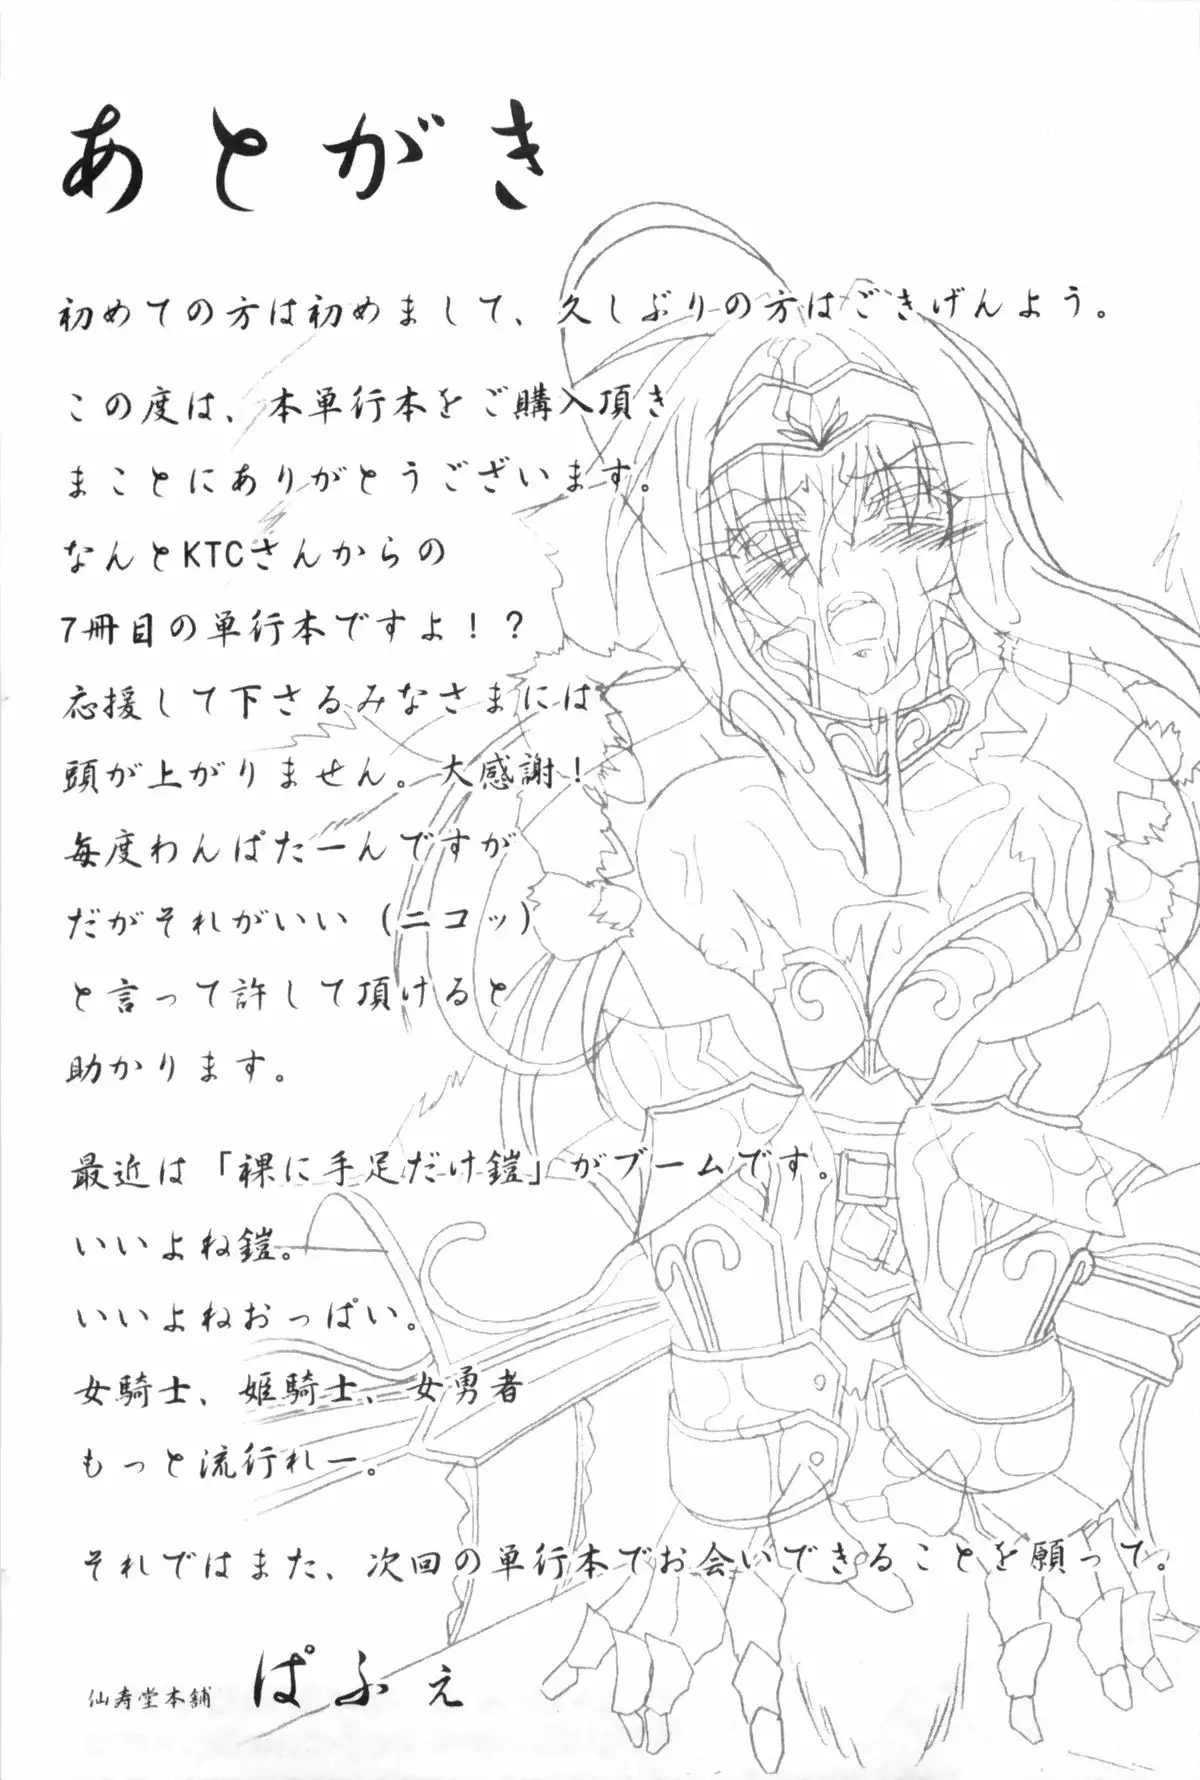 あとがき
初めての方は初めまして、久しぶりの方はごきげんよう。
この度は、本単行本をご購入頂き
まことにありがとうございます。
なんとKTCさんからの
7冊目の単行本ですよ！？
応援して下さるみなさまには
頭が上がりません。大感謝！
毎度わんぱたーんですが
だがそれがいい（ニコッ）
と言って許して頂けると
助かります。
最近は「裸に手足だけ鎧」がブームです。
いいよね鎧。
いいよねおっぱい。
女騎士、姫騎士、女勇者
もっと流行れー。
それではまた、次回の単行本でお会いできることを願って。
仙寿堂本舗 ぱふぇ